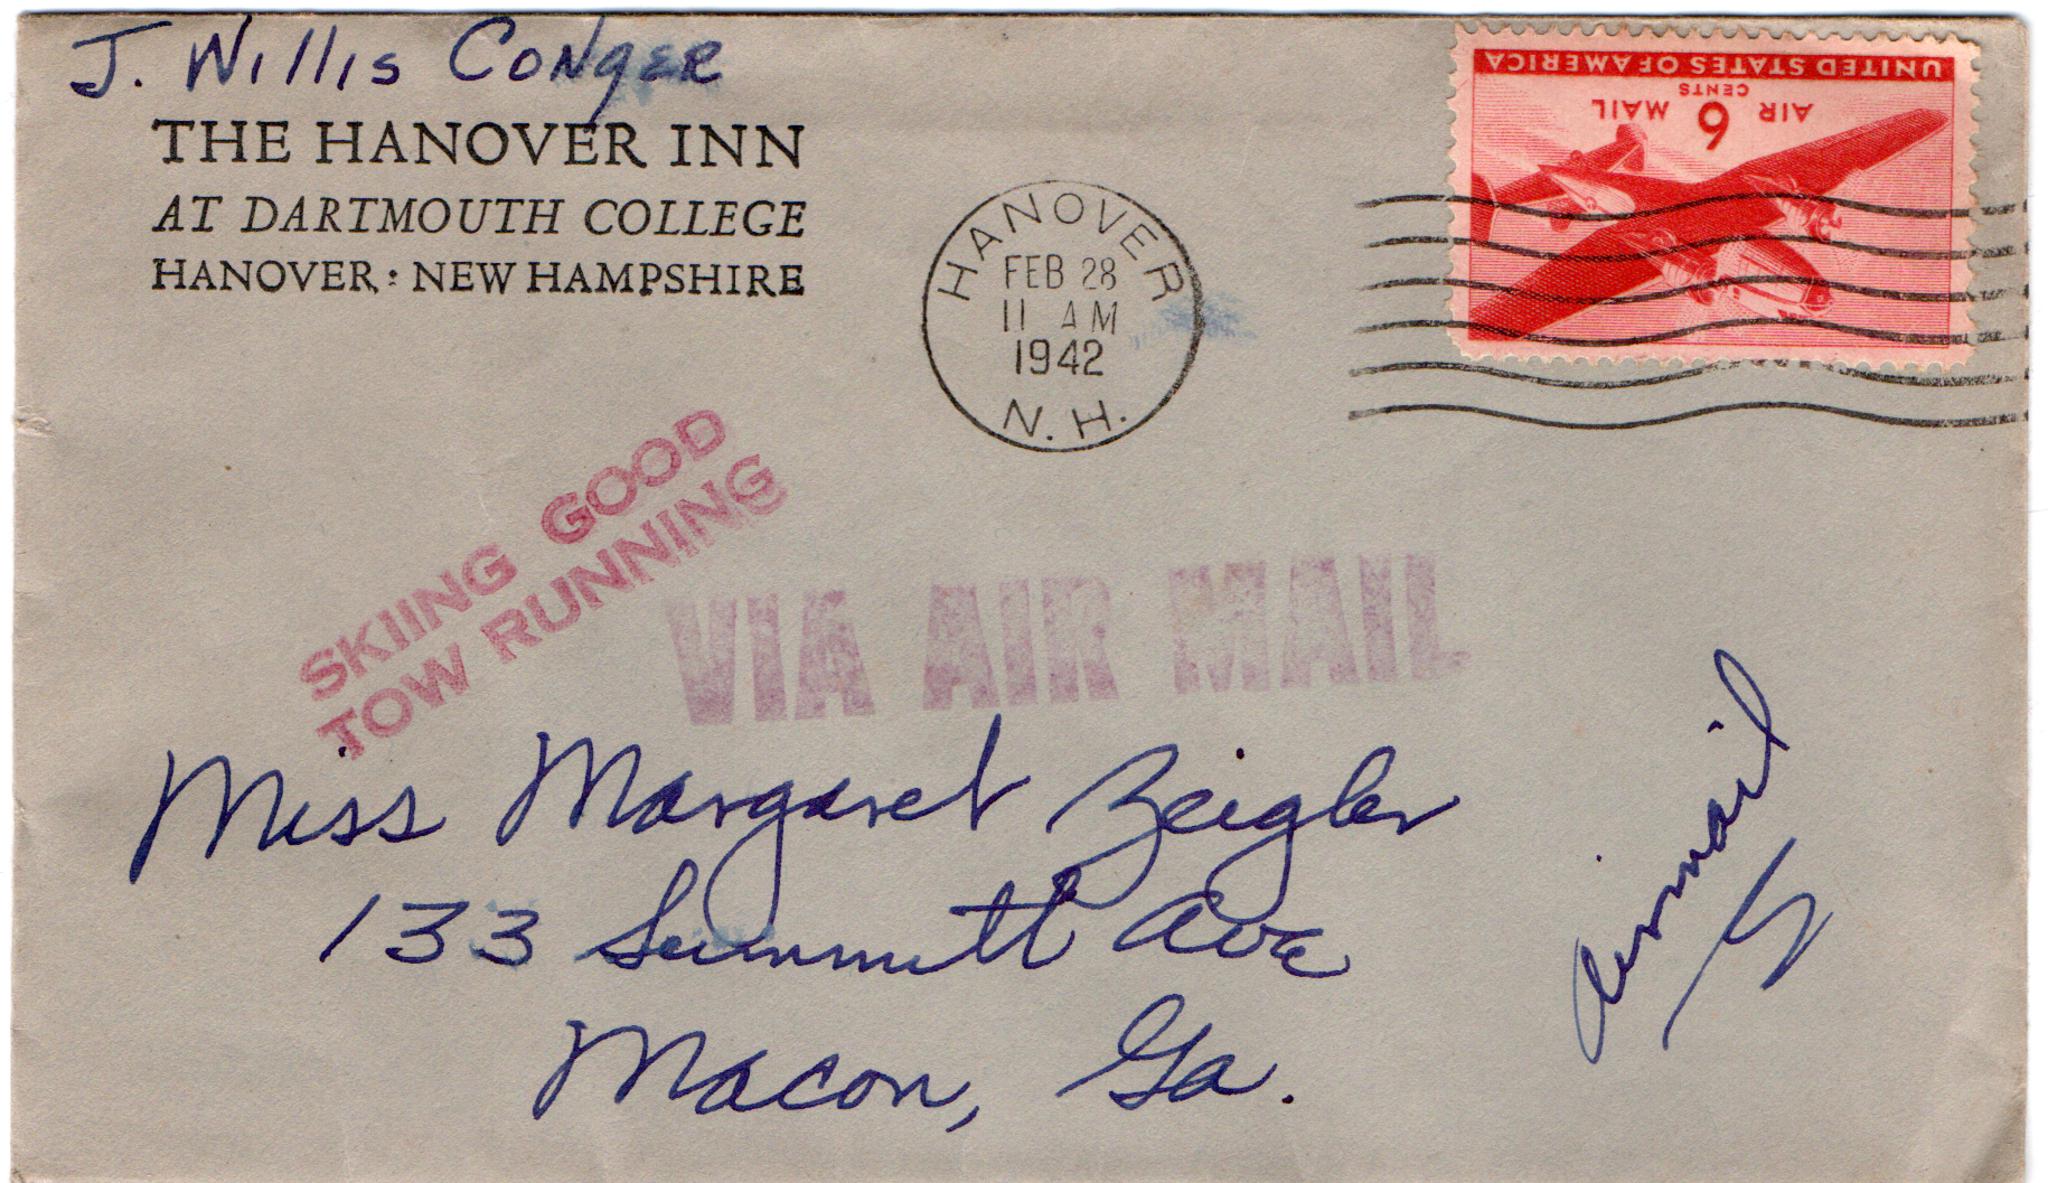 J. Willis Conger
THE HANOVER INN
AT DARTMOUTH COLLEGE
HANOVER : NEW HAMPSHIRE
HANOVER
FEB 28
11 AM
1942
N.H.
UNITED STATES OF AMERICA
6
CENTS
AIR MAIL
SKIING GOOD
TOW RUNNING
VIA AIR MAIL
Miss Margaret Zeigler
133 Summitt Ave
Macon, Ga.
Airmail